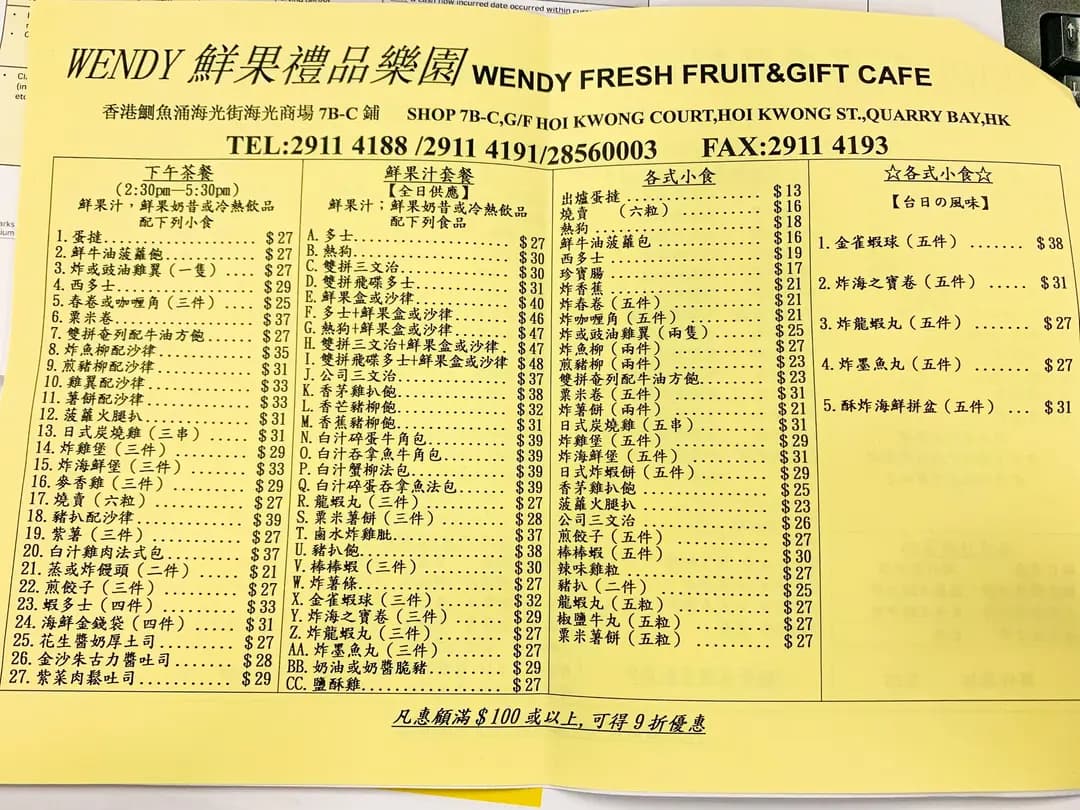 WENDY 鮮果禮品樂園 WENDY FRESH FRUIT&GIFT CAFE
香港鰂魚涌海光街海光商場 7B-C 鋪 SHOP 7B-C,G/F HOI KWONG COURT,HOI KWONG ST.,QUARRY BAY,HK
TEL:2911 4188 /2911 4191/28560003 FAX:2911 4193
下午茶餐
(2:30pm—5:30pm)
鮮果汁，鮮果奶昔或冷熱飲品
配下列小食
1. 蛋撻 $27
2. 鮮牛油菠蘿飽 $27
3. 炸或豉油雞翼（一隻） $27
4. 西多士 $29
5. 春卷或咖喱角（三件） $25
6. 粟米卷 $37
7. 雙拼奄列配牛油方飽 $27
8. 炸魚柳配沙律 $35
9. 煎豬柳配沙律 $31
10. 雞翼配沙律 $33
11. 薯餅配沙律 $33
12. 菠蘿火腿扒 $31
13. 日式炭燒雞（三串） $31
14. 炸雞堡（三件） $29
15. 炸海鮮堡（三件） $33
16. 麥香雞（三件） $29
17. 燒賣（六粒） $27
18. 豬扒配沙律 $39
19. 紫薯（三件） $27
20. 白汁雞肉法式包 $37
21. 蒸或炸饅頭（二件） $21
22. 煎餃子（三件） $27
23. 蝦多士（四件） $33
24. 海鮮金錢袋（四件） $31
25. 花生醬奶厚土司 $27
26. 金沙朱古力醬吐司 $28
27. 紫菜肉鬆吐司 $29
鮮果汁套餐
【全日供應】
鮮果汁；鮮果奶昔或冷熱飲品
配下列食品
A. 多士 $27
B. 熱狗 $30
C. 雙拼三文治 $30
D. 雙拼飛碟多士 $31
E. 鮮果盒或沙律 $40
F. 多士+鮮果盒或沙律 $46
G. 熱狗+鮮果盒或沙律 $47
H. 雙拼三文治+鮮果盒或沙律 $47
I. 雙拼飛碟多士+鮮果盒或沙律 $48
J. 公司三文治 $37
K. 香茅雞扒飽 $38
L. 香芒豬柳飽 $32
M. 香蕉豬柳飽 $31
N. 白汁碎蛋牛角包 $39
O. 白汁吞拿魚牛角包 $39
P. 白汁蟹柳法包 $39
Q. 白汁碎蛋吞拿魚法包 $39
R. 龍蝦丸（三件） $27
S. 粟米薯餅（三件） $28
T. 鹵水炸雞肶 $37
U. 豬扒飽 $38
V. 棒棒蝦（三件） $30
W. 炸薯條 $27
X. 金雀蝦球（三件） $32
Y. 炸海之寶卷（三件） $29
Z. 炸龍蝦丸（三件） $27
AA. 炸墨魚丸（三件） $27
BB. 奶油或奶醬脆豬 $29
CC. 鹽酥雞 $27
各式小食
出爐蛋撻 $13
燒賣（六粒） $16
熱狗 $18
鮮牛油菠蘿包 $16
西多士 $19
珍寶腸 $17
炸香蕉 $21
炸春卷（五件） $21
炸咖喱角（五件） $21
炸或豉油雞翼（兩隻） $25
炸魚柳（兩件） $27
煎豬柳（兩件） $23
雙拼奄列配牛油方飽 $23
粟米卷（五件） $31
炸薯餅（兩件） $21
日式炭燒雞（五串） $31
炸雞堡（五件） $29
炸海鮮堡（五件） $31
日式炸蝦餅（五件） $29
香茅雞扒飽 $25
菠蘿火腿扒 $23
公司三文治 $26
煎餃子（五件） $27
棒棒蝦（五件） $30
辣味雞粒 $27
豬扒（二件） $25
龍蝦丸（五粒） $27
椒鹽牛丸（五粒） $27
粟米薯餅（五粒） $27
☆各式小食☆
【台日の風味】
1. 金雀蝦球（五件） $38
2. 炸海之寶卷（五件） $31
3. 炸龍蝦丸（五件） $27
4. 炸墨魚丸（五件） $27
5. 酥炸海鮮拼盆（五件） $31
凡惠顧滿$100或以上,可得9折優惠